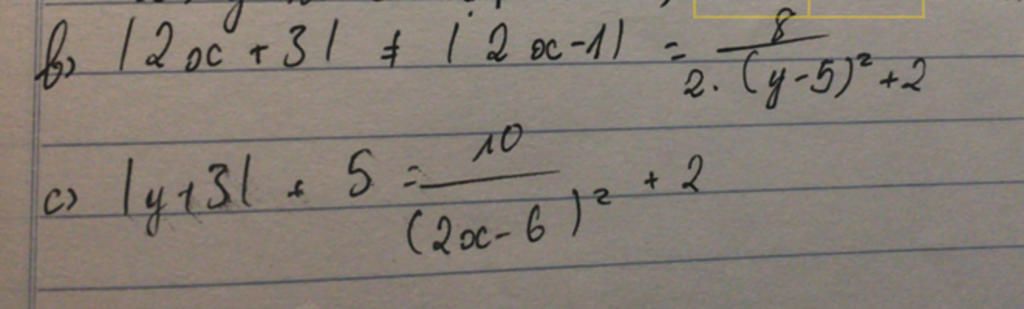 b) |2x + 3| + |2x - 1| = 8 / 2.(y - 5)² + 2
c) |y + 3| + 5 = 10 / (2x - 6)² + 2